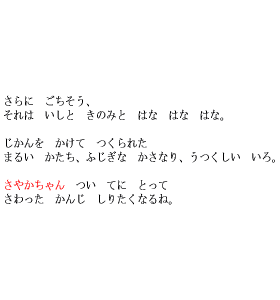 さらに　ごちそう、
それは　いしと　きのみと　はな　はな　はな。
じかんを　かけて　つくられた
まるい　かたち、ふしぎな　かさなり、うつくしい　いろ。
さやかちゃん　つい　てに　とって
さわった　かんじ　しりたくなるね。